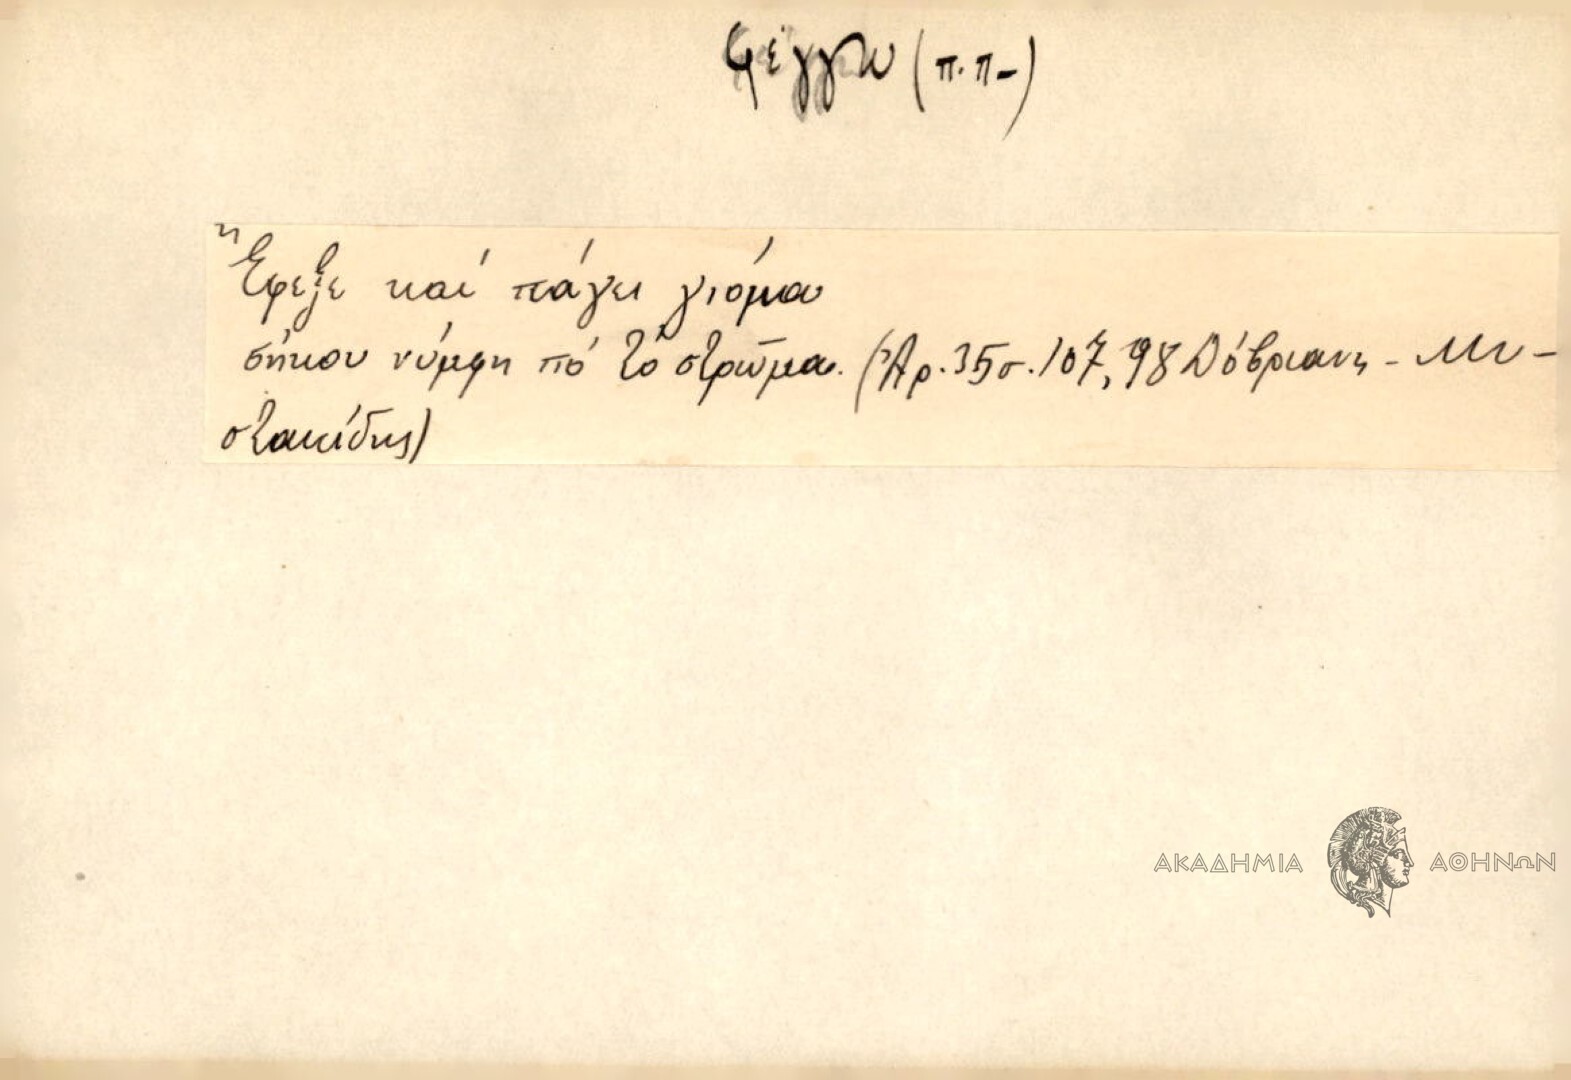 φέγγω (π.π-)
Ἔφεξε καί πάγει γιόμα
σήκου νύμφη πό τό στρῶμα. (Ἀρ. 35 σ. 107, 98 Δόβριανη - Μυ-
στακίδης)
ΑΚΑΔΗΜΙΑ ΑΘΗΝΩΝ